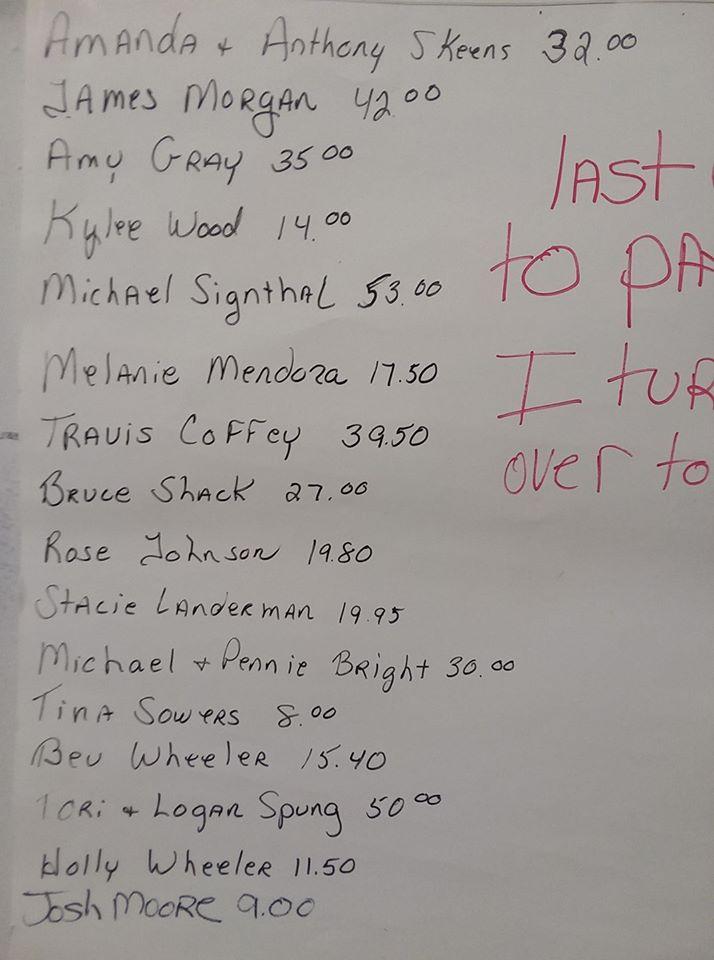 Amanda + Anthony Skeens 32.00
James Morgan 42.00
Amy Gray 35.00
Kylee Wood 14.00
Michael Signthal 53.00
Melanie Mendoza 17.50
Travis Coffey 39.50
Bruce Shack 27.00
Rose Johnson 19.80
Stacie Landerman 19.95
Michael + Pennie Bright 30.00
Tina Sowers 8.00
Bev Wheeler 15.40
Tori + Logan Spung 50.00
Holly Wheeler 11.50
Josh Moore 9.00
last
to pa
I tur
over to